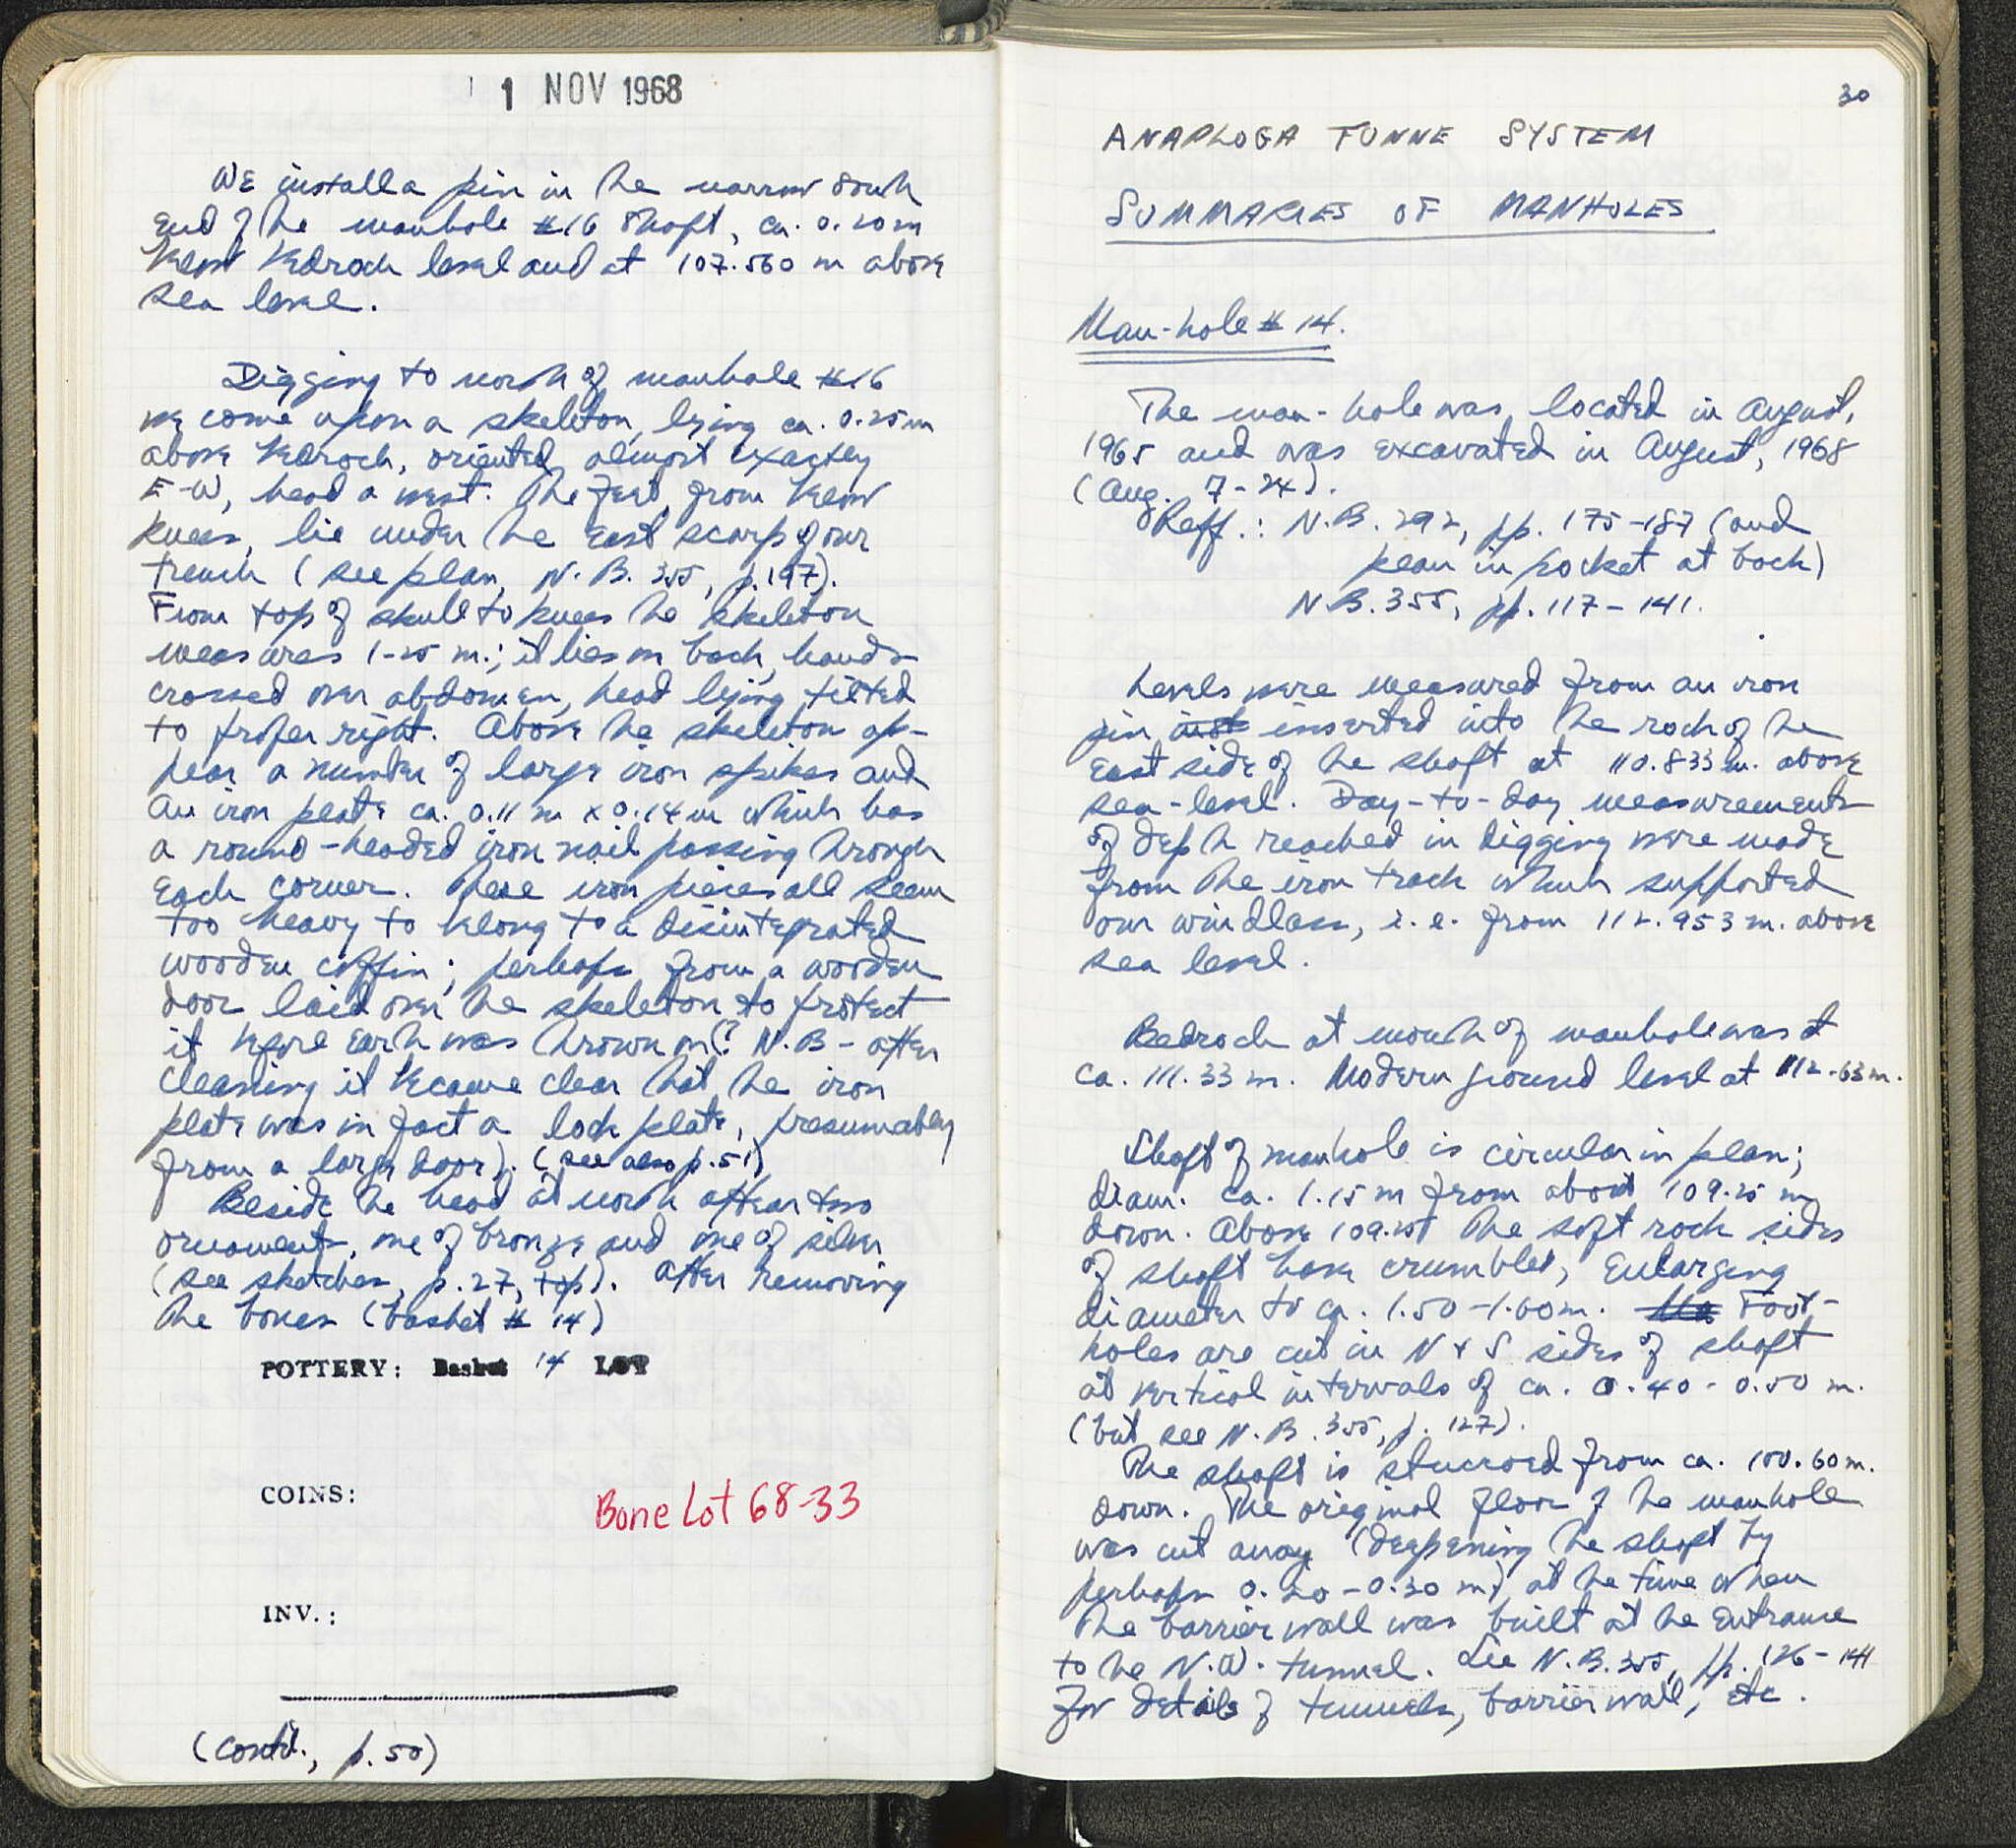 1 NOV 1968
We install a pin in the narrow south
end of the manhole #16 shaft, ca. 0.20 m
below bedrock level and at 107.560 m above
sea level.
Digging to north of manhole #16
we come upon a skeleton, lying ca. 0.25 m
above bedrock, oriented almost exactly
E-W, head a west. The feet, from below
knees, lie under the east scarp of our
trench (see plan, N.B. 355, p. 197).
From top of skull to knees the skeleton
measures 1.25 m.; it lies on back, hands
crossed over abdomen, head lying tilted
to proper right. Above the skeleton ap-
pear a number of large iron spikes and
an iron plate ca. 0.11 m x 0.14 m which has
a round-headed iron nail passing through
each corner. These iron pieces all seem
too heavy to belong to a disintegrated
wooden coffin; perhaps from a wooden
door laid over the skeleton to protect
it before earth was thrown on (? N.B - after
cleaning it became clear that the iron
plate was in fact a lock plate, presumably
from a large door). (see also p. 51)
Beside the head at north appear two
ornaments, one of bronze and one of silver
(see sketches, p. 27, top). After removing
the bones (basket # 14)
POTTERY: Basket 14 LOT
COINS:
Bone Lot 68-33
INV.:
(contd., p. 50)
30
ANAPLOGA TUNNE SYSTEM
SUMMARIES OF MANHOLES
Man-hole # 14.
The man-hole was located in August,
1965 and was excavated in August, 1968
(Aug. 7-24).
Reff.: N.B. 292, pp. 175-187 (and
plan in pocket at back)
N.B. 355, pp. 117-141.
Levels were measured from an iron
pin inserted into the rock of the
east side of the shaft at 110.833 m. above
sea-level. Day-to-day measurements
of depth reached in digging were made
from the iron track which supported
our windlass, i.e. from 112.953 m. above
sea level.
Bedrock at mouth of manhole was at
ca. 111.33 m. Modern ground level at 112.63 m.
Shaft of manhole is circular in plan;
diam. ca. 1.15 m from about 109.25 m
down. Above 109.25 the soft rock sides
of shaft have crumbled, enlarging
diameter to ca. 1.50-1.60 m. Foot-
holes are cut in N + S sides of shaft
at vertical intervals of ca. 0.40-0.50 m.
(but see N.B. 355, p. 127).
The shaft is stuccoed from ca. 100.60 m.
down. The original floor of the manhole
was cut away (deepening the shaft by
perhaps 0.20-0.30 m) at the time when
the barrier wall was built at the entrance
to the N.W. tunnel. See N.B. 355, pp. 126-141
for details of tunnels, barrier wall, etc.